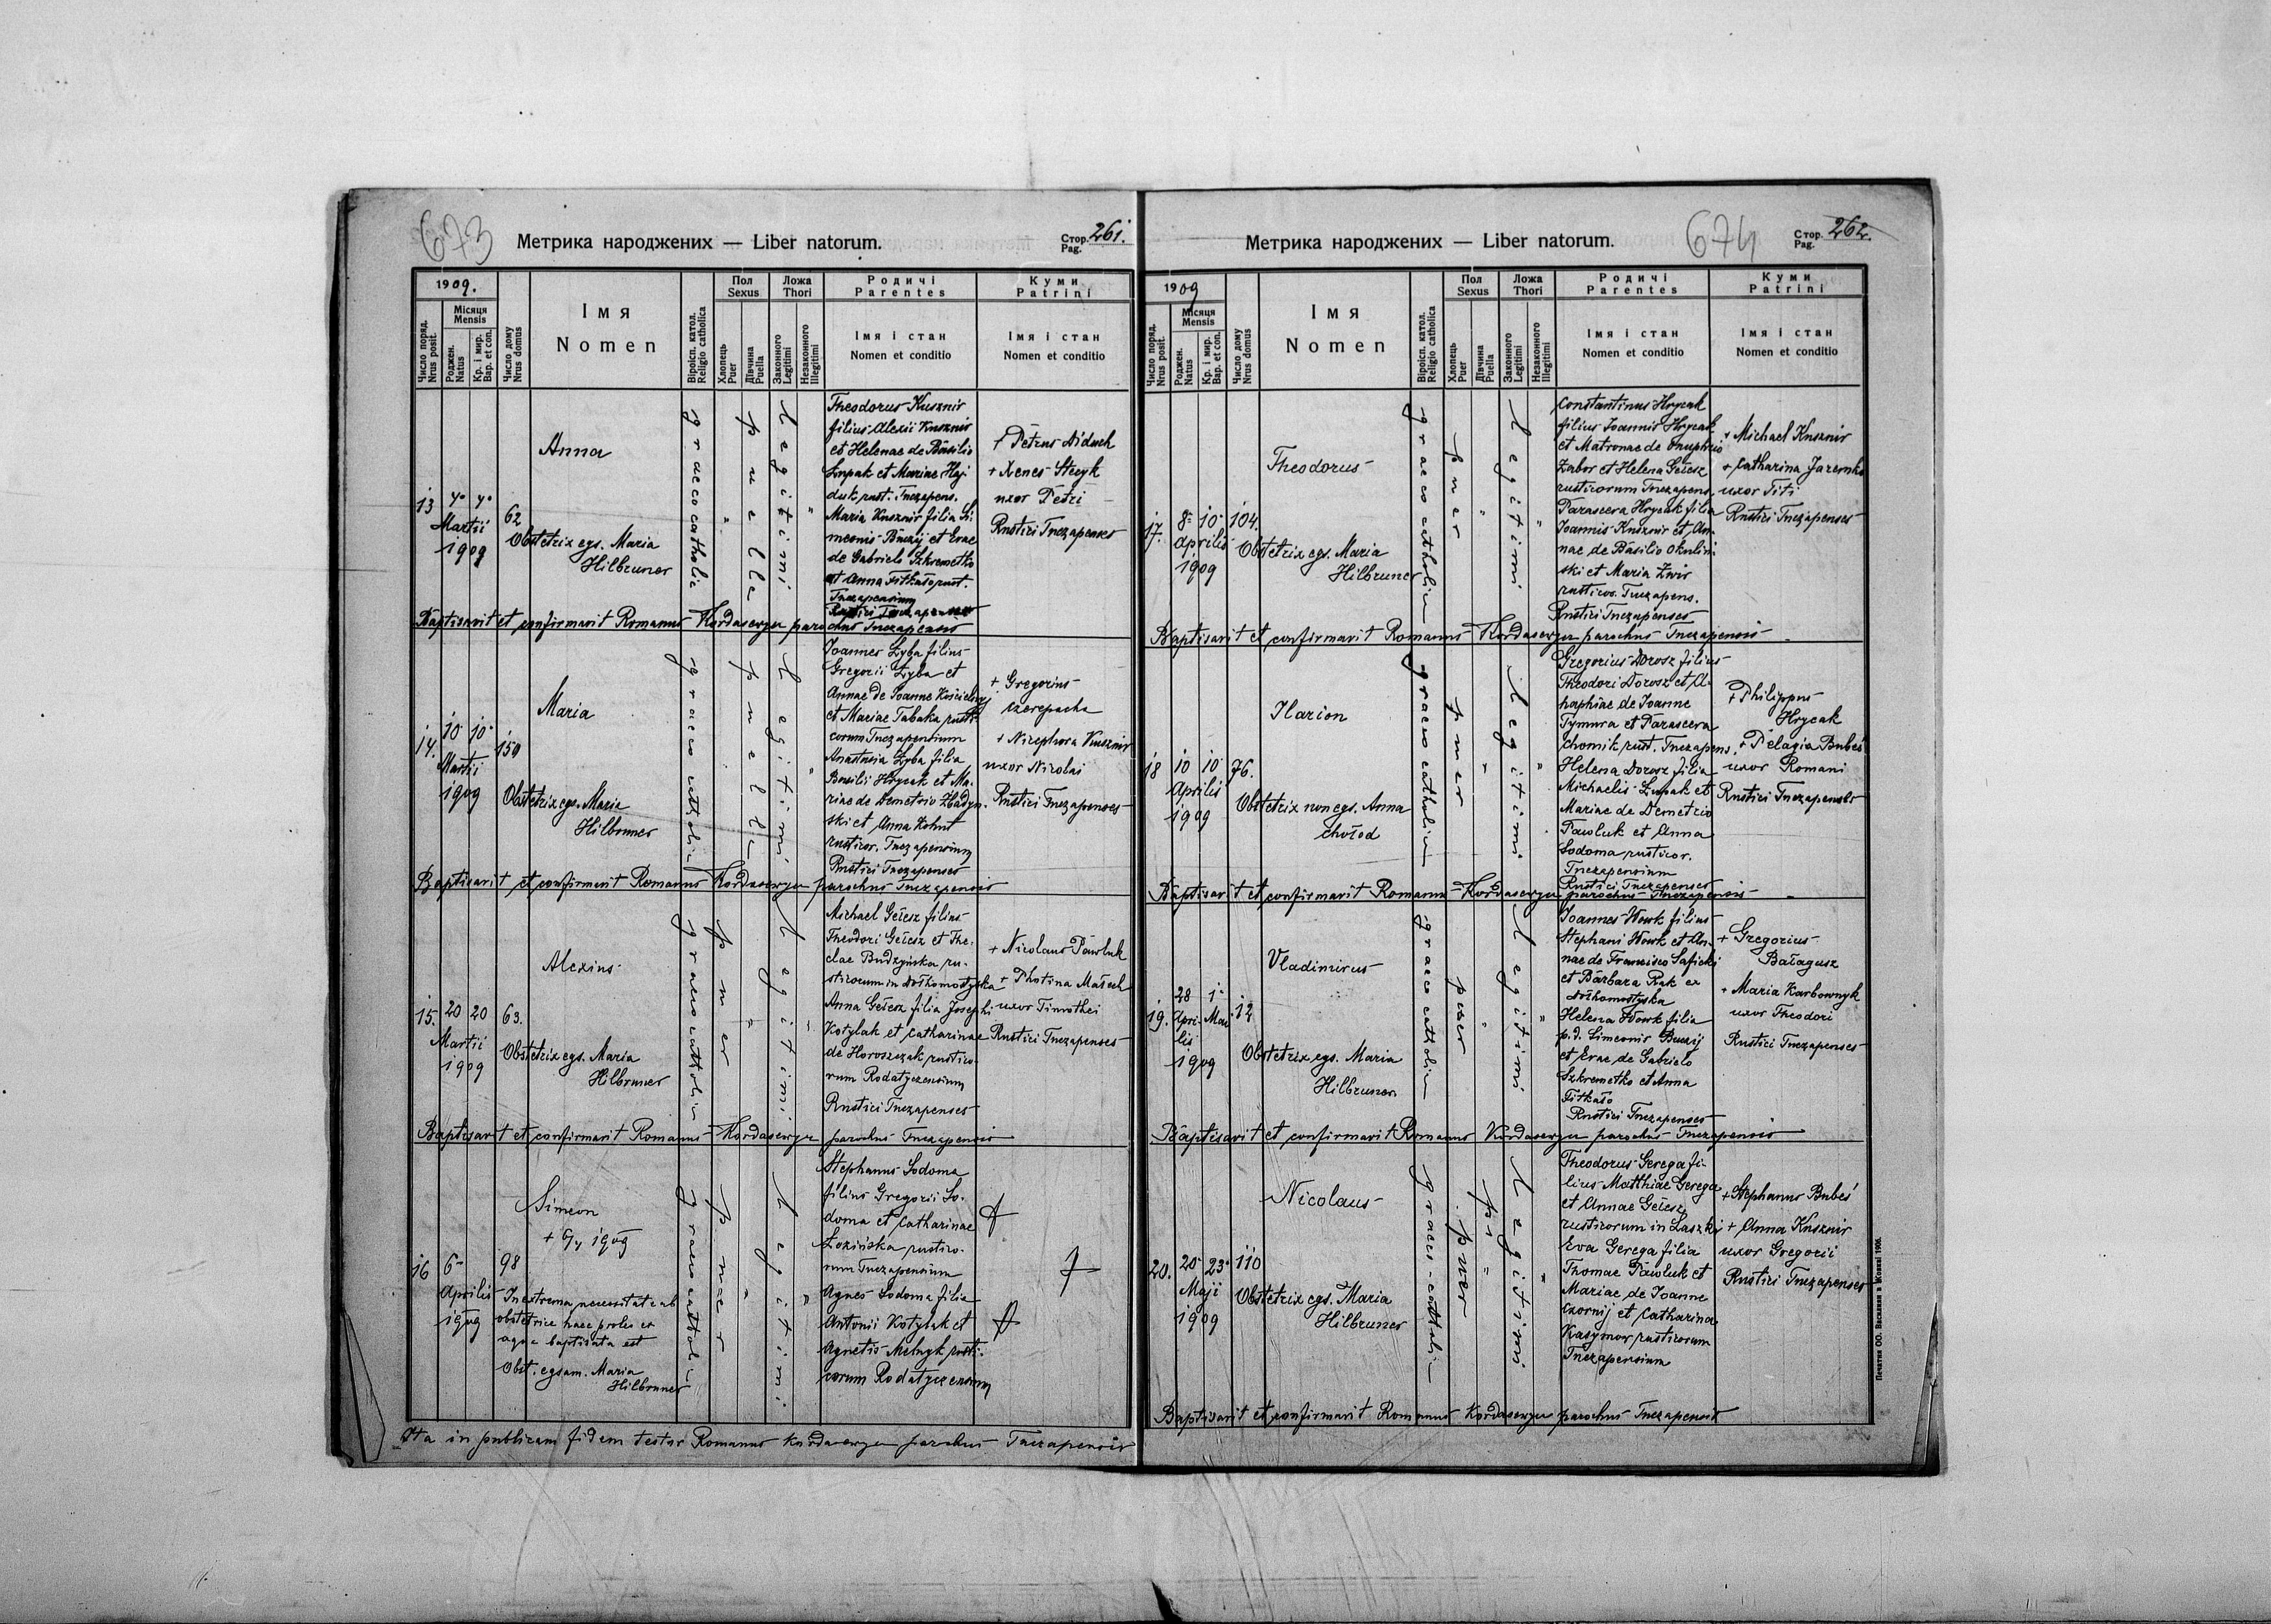 673
Метрика народжених — Liber natorum.
Стор. Pag. 261.
1909.
Число поряд. Nrus posit.
Місяця Mensis
Роджен. Natus
Кр. і мир. Bap. et con.
Число дому Nrus domus
Імя
Nomen
Віроісп. катол. Religio catholica
Пол Sexus
Хлопець Puer
Дівчина Puella
Ложа Thori
Законного Legitimi
Незаконного Illegitimi
Родичі
Parentes
Імя і стан
Nomen et conditio
Куми
Patrini
Імя і стан
Nomen et conditio
13
Martii
1909
62
Anna
Obstetrix egs. Maria
Hilbruner
graeco catholic
puella
legitimi
Theodorus Kusznir
filius Alexii Kusznir
et Helenae de Basilio
Łupak et Mariae Haj-
duk rust. Tuczapens.
Maria Kusznir filia Si-
meonis Buczij et Evae
de Gabriele Szkremetko
et Anna Fitkało rust.
Tuczapensium
Rustici Tuczapenses
+ Petrus Diduch
+ Xenes Stecyk
uxor Petri
Rustici Tuczapenses
Baptisavit et confirmavit Romanus Kordasewycz parochus Tuczapensis
14.
10 10
Martii
1909
150
Maria
Obstetrix egs. Maria
Hilbruner
graeco catholic
puella
legitimi
Joannes Zyba filius
Gregorii Zyba et
Annae de Joanne Kościelny
et Mariae Tabaka rusti-
corum Tuczapensium
Anastasia Zyba filia
Basilii Hrycak et Ma-
riae de Demetrio Zhadyn-
ski et Anna Kohut
rusticor. Tuczapensium
Rustici Tuczapenses
+ Gregorius
Czerepacha
+ Nicephora Kusznir
uxor Nicolai
Rustici Tuczapenses
Baptisavit et confirmavit Romanus Kordasewycz parochus Tuczapensis
15.
20 20
Martii
1909
63.
Alexius
Obstetrix egs. Maria
Hilbruner
graeco catholic
puer
legitimi
Michael Gełesz filius
Theodori Gełesz et The-
clae Budzyńska ru-
sticorum in Dołhomostyska
Anna Gełesz filia Josephi
Kotylak et Catharinae
de Horoszczak rustico-
rum Rodatyczensium
Rustici Tuczapenses
+ Nicolaus Pawluk
+ Photina
uxor Timothei
Rustici Tuczapenses
Baptisavit et confirmavit Romanus Kordasewycz parochus Tuczapensis
16
6
Aprilis
1909
98
Simeon
In extrema necessitate ab
obstetrice haec proles ex
aqua baptisata est
Obst. egsam. Maria
Hilbruner
graeco catholic
puer
legitimi
Stephanus Sodoma
filius Gregorii So-
doma et Catharinae
Łozińska rustico-
rum Tuczapensium
Agnes Sodoma filia
Antonii Kotylak et
Agnetis Melnyk rusti-
corum Rodatyczensium
Ita in publicam fidem testor Romanus Kordasewycz parochus Tuczapensis
674
Метрика народжених — Liber natorum.
Стор. Pag. 262.
1909
Число поряд. Nrus posit.
Місяця Mensis
Роджен. Natus
Кр. і мир. Bap. et con.
Число дому Nrus domus
Імя
Nomen
Віроісп. катол. Religio catholica
Пол Sexus
Хлопець Puer
Дівчина Puella
Ложа Thori
Законного Legitimi
Незаконного Illegitimi
Родичі
Parentes
Імя і стан
Nomen et conditio
Куми
Patrini
Імя і стан
Nomen et conditio
17.
8 10
Aprilis
1909
104.
Theodorus
Obstetrix egs. Maria
Hilbruner
graeco catholic
puer
legitimi
Constantinus Hrycak
filius Joannis Hrycak
et Matronae de Onuphrio
Zabor et Helena Gełesz
rusticorum Tuczapens.
Parascera Hrycak filia
Joannis Kusznir et An-
nae de Basilio Okulin-
ski et Maria Zwir
rusticor. Tuczapens.
Rustici Tuczapenses
+ Michael Kusznir
+ Catharina
uxor Titi
Rustici Tuczapenses
Baptisavit et confirmavit Romanus Kordasewycz parochus Tuczapensis
18
10 10
Aprilis
1909
76.
Ilarion
Obstetrix non egs. Anna
Chołod
graeco catholic
puer
legitimi
Gregorius Dorosz filius
Theodori Dorosz et A-
haphiae de Joanne
Tymura et Parascera
Chomik rust. Tuczapens.
Helena Dorosz filia
Michaelis Łupak et
Mariae de Demetrio
Pawluk et Anna
Sodoma rusticor.
Tuczapensium
Rustici Tuczapenses
+ Philippus
Hrycak
+ Pelagia Bubeś
uxor Romani
Rustici Tuczapenses
Baptisavit et confirmavit Romanus Kordasewycz parochus Tuczapensis
19.
28 1
Apri- Mai
lis
1909
12
Vladimirus
Obstetrix egs. Maria
Hilbruner
graeco catholic
puer
legitimi
Joannes Wowk filius
Stephani Wowk et An-
nae de Francisco Saficki
et Barbara Rak ex
Dołhomostyska
Helena Wowk filia
p.d. Simeonis Buczij
et Evae de Gabriele
Szkremetko et Anna
Fitkało
Rustici Tuczapenses
+ Gregorius
Bałagusz
+ Maria Karbownyk
uxor Theodori
Rustici Tuczapenses
Baptisavit et confirmavit Romanus Kordasewycz parochus Tuczapensis
20.
20 23
Maji
1909
110
Nicolaus
Obstetrix egs. Maria
Hilbruner
graeco-catholic
puer
legitimi
Theodorus Gerega fi-
lius Matthiae Gerega
et Annae Gełesz
rusticorum in Laszki
Eva Gerega filia
Thomae Pawluk et
Mariae de Joanne
Czornij et Catharina
Kasymow rusticorum
Tuczapensium
+ Stephanus Bubeś
+ Anna Kusznir
uxor Gregorii
Rustici Tuczapenses
Baptisavit et confirmavit Romanus Kordasewycz parochus Tuczapensis
Печатня ОО. Василиян в Жовкві 1906.